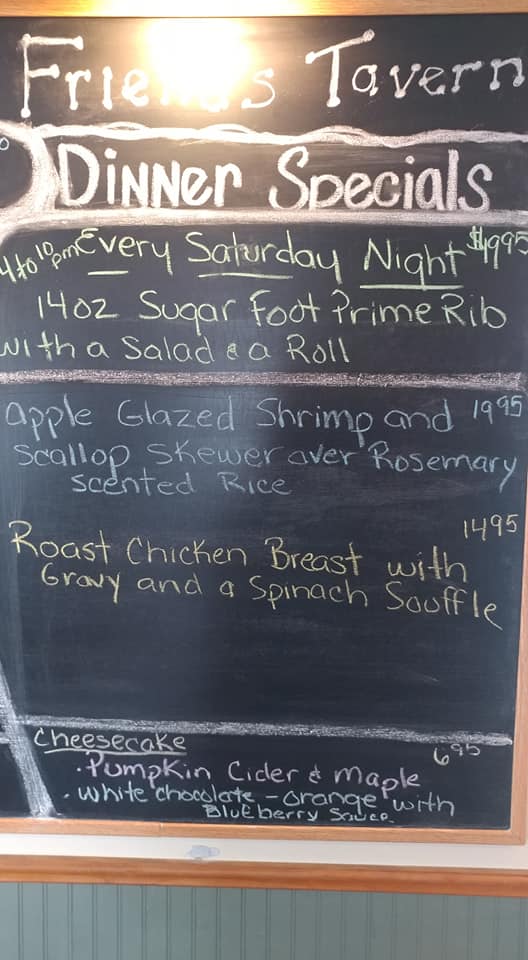 Friends Tavern
Dinner Specials
4 to 10 pm Every Saturday Night
14oz Sugar Foot Prime Rib
with a Salad & a Roll
Apple Glazed Shrimp and 1995
Scallop Skewer over Rosemary
Scented Rice
1495
Roast Chicken Breast with
Gravy and a Spinach Souffle
Cheesecake 695
· Pumpkin Cider & Maple
· White chocolate - Orange with
Blueberry Sauce